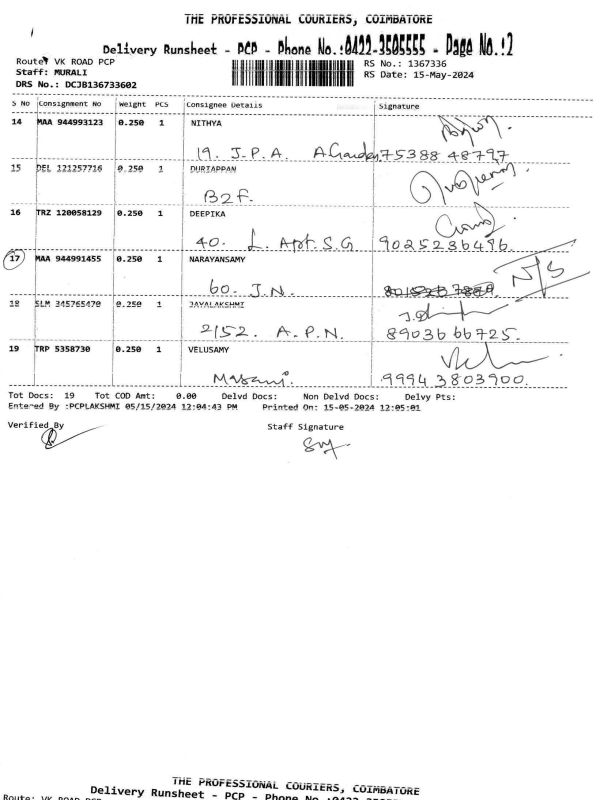 THE PROFESSIONAL COURIERS, COIMBATORE
Delivery Runsheet - PCP - Phone No.:0422-3505555 - Page No.:2
Route: VK ROAD PCP
RS No.: 1367336
Staff: MURALI
RS Date: 15-May-2024
DRS No.: DCJB136733602
S No Consignment No Weight PCS Consignee Details Signature
14 MAA 944993123 0.250 1 NITHYA
19. J.P.A. A Garden 75388 48797
15 DEL 121257716 0.250 1 DURIAPPAN
B2F.
16 TRZ 120058129 0.250 1 DEEPIKA
40. L. Apt. S.G 9025236496.
17 MAA 944991455 0.250 1 NARAYANSAMY
60. J.N. N/S
18 SLM 345765470 0.250 1 JAYALAKSHMI
2/52. A.P.N. 8903666725.
19 TRP 5358730 0.250 1 VELUSAMY
9994 3803900.
Tot Docs: 19 Tot COD Amt: 0.00 Delvd Docs: Non Delvd Docs: Delvy Pts:
Entered By :PCPLAKSHMI 05/15/2024 12:04:43 PM Printed On: 15-05-2024 12:05:01
Verified By Staff Signature
THE PROFESSIONAL COURIERS, COIMBATORE
Delivery Runsheet - PCP - Phone No.:0422-3505
Route: VK ROAD PCP